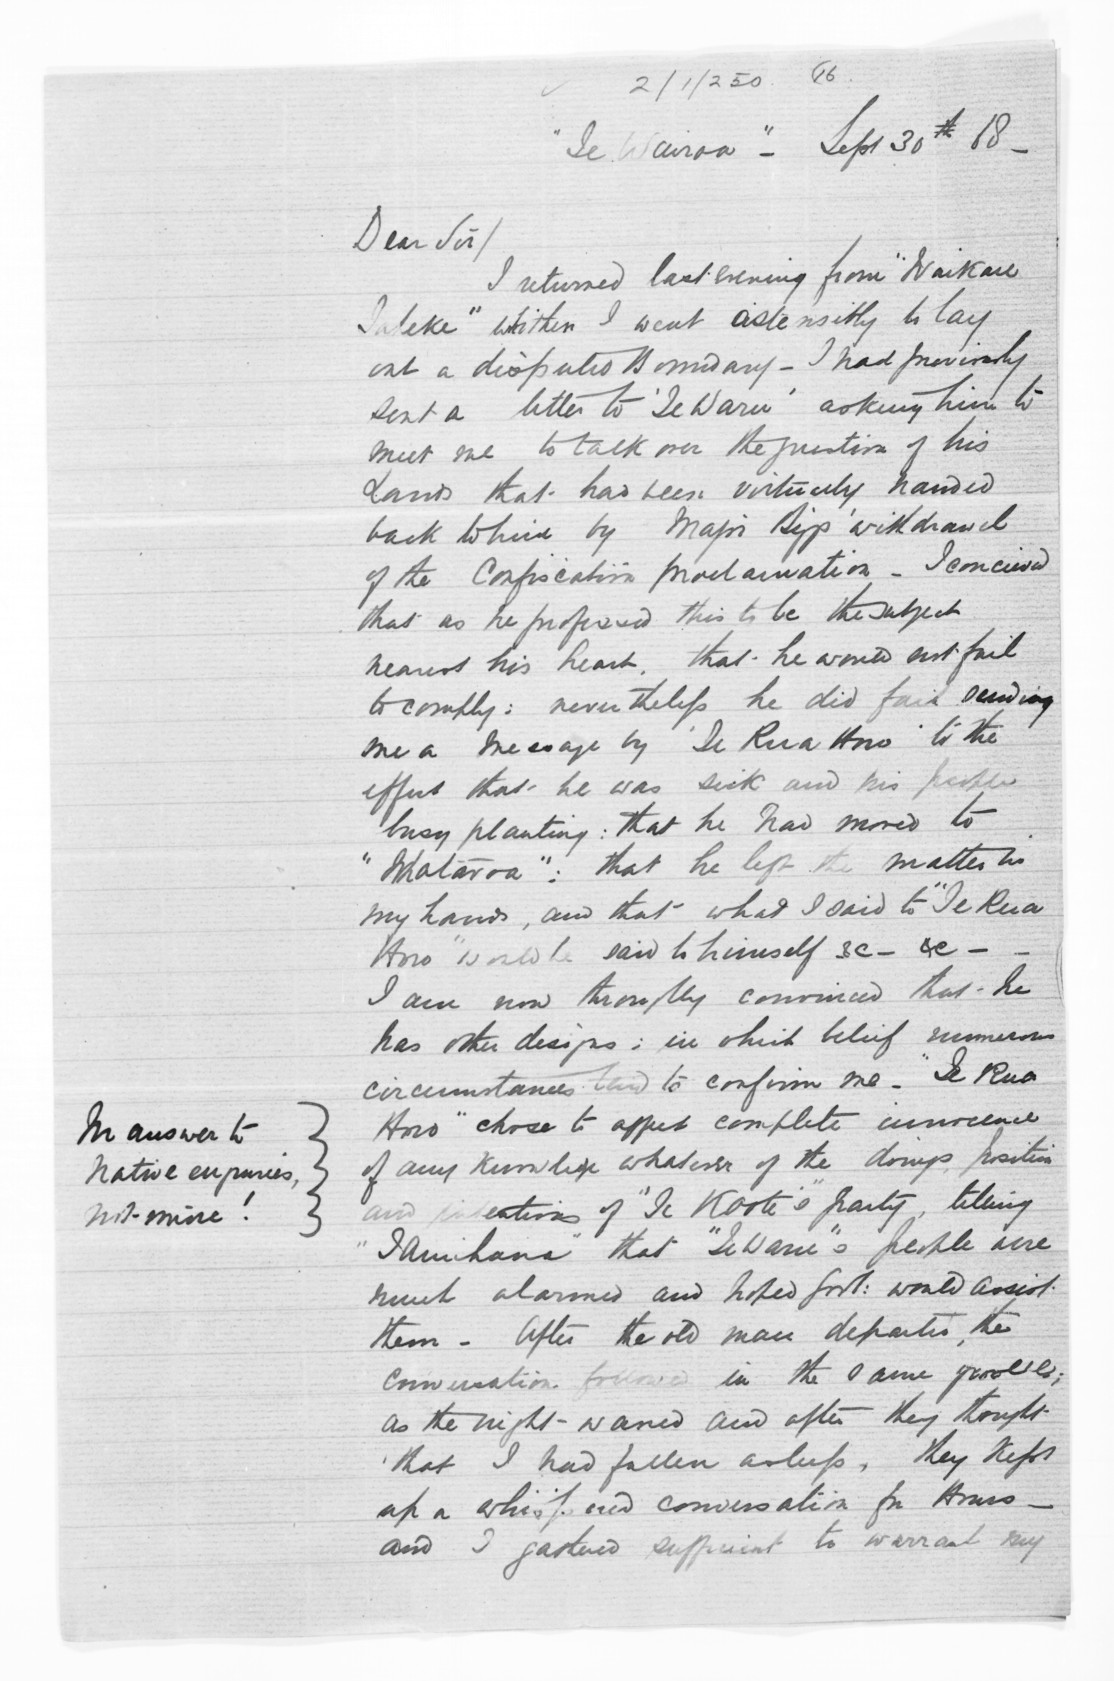 2/1/250. 16.
"Te Wairoa" - Sept 30th 68 -
Dear Sir/
I returned last evening from "Waikare
Taheke" whither I went ostensibly to lay
out a disputed Boundary - I had previously
sent a letter to 'Te Waru' asking him to
meet me to talk over the question of his
Lands that had been virtually handed
back to him by Major Bigg' withdrawal
of the Confiscation proclamation - I concieved
that as he professed this to be the subject
nearest his heart, that he would not fail
to comply: nevertheless he did fail sending
me a message by 'Te Rua Horo' to the
effect that he was sick and his people
busy planting: that he had moved to
"Mataroa": that he left the matter in
my hands, and that what I said to "Te Rua
Horo" would be said to himself &c - &c - -
I am now throughly convinced that he
has other designs: in which belief numerous
circumstances tend to confirm me - "Te Rua
Horo" chose to affect complete innocence
of any knowledge whatever of the doings, position
and intentions of "Te Kooti's" party, telling
"Tamihana" that "Te Waru"s people were
much alarmed and hoped Govt: would assist
them - After the old man departed, the
conversation followed in the same
as the night waned and after they thought
that I had fallen asleep, they kept
up a whispered conversation for Hours -
and I gathered sufficient to warrant my
In answer to
Native enquiries,
not mine!